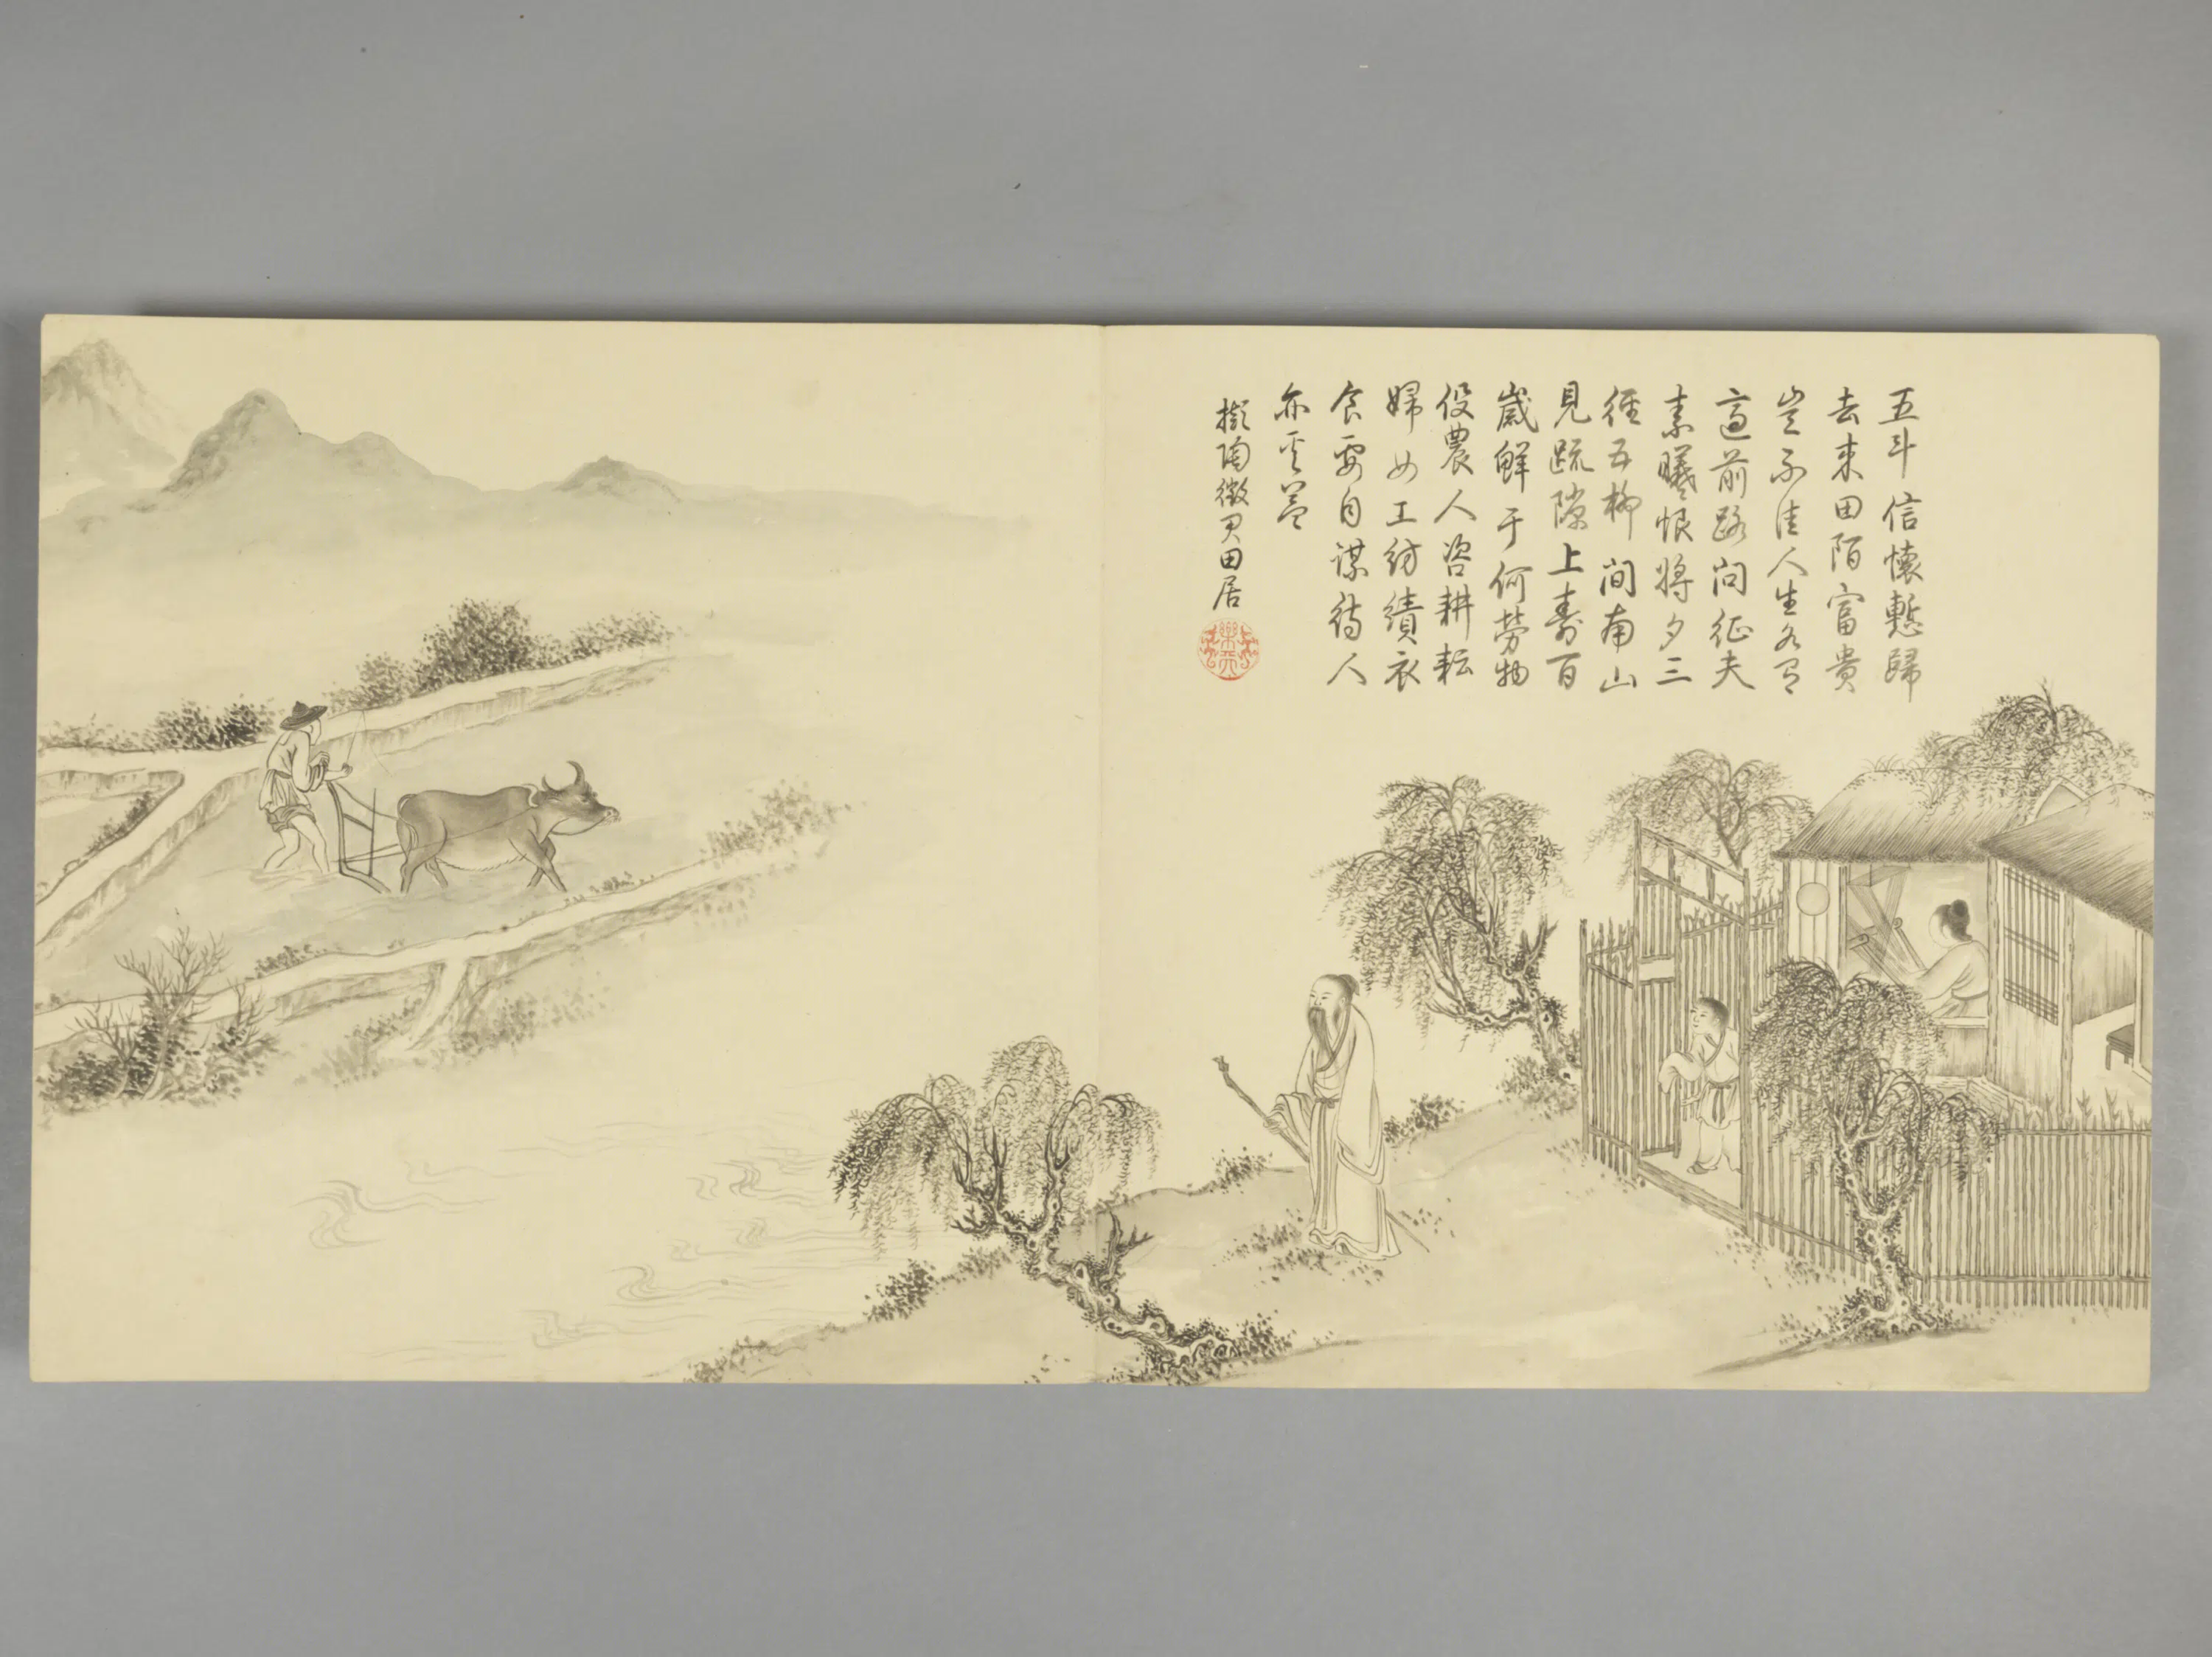 五斗信懷慙歸
去来田陌富貴
豈不佳人生各有
適前路問征夫
素曦恨將夕三
徑五柳間南山
見疏隙上壽百
歲鮮于何勞物
役農人咨耕耘
婦女工紡績衣
食要自謀待人
亦奚益
擬陶徵君田居
樂天